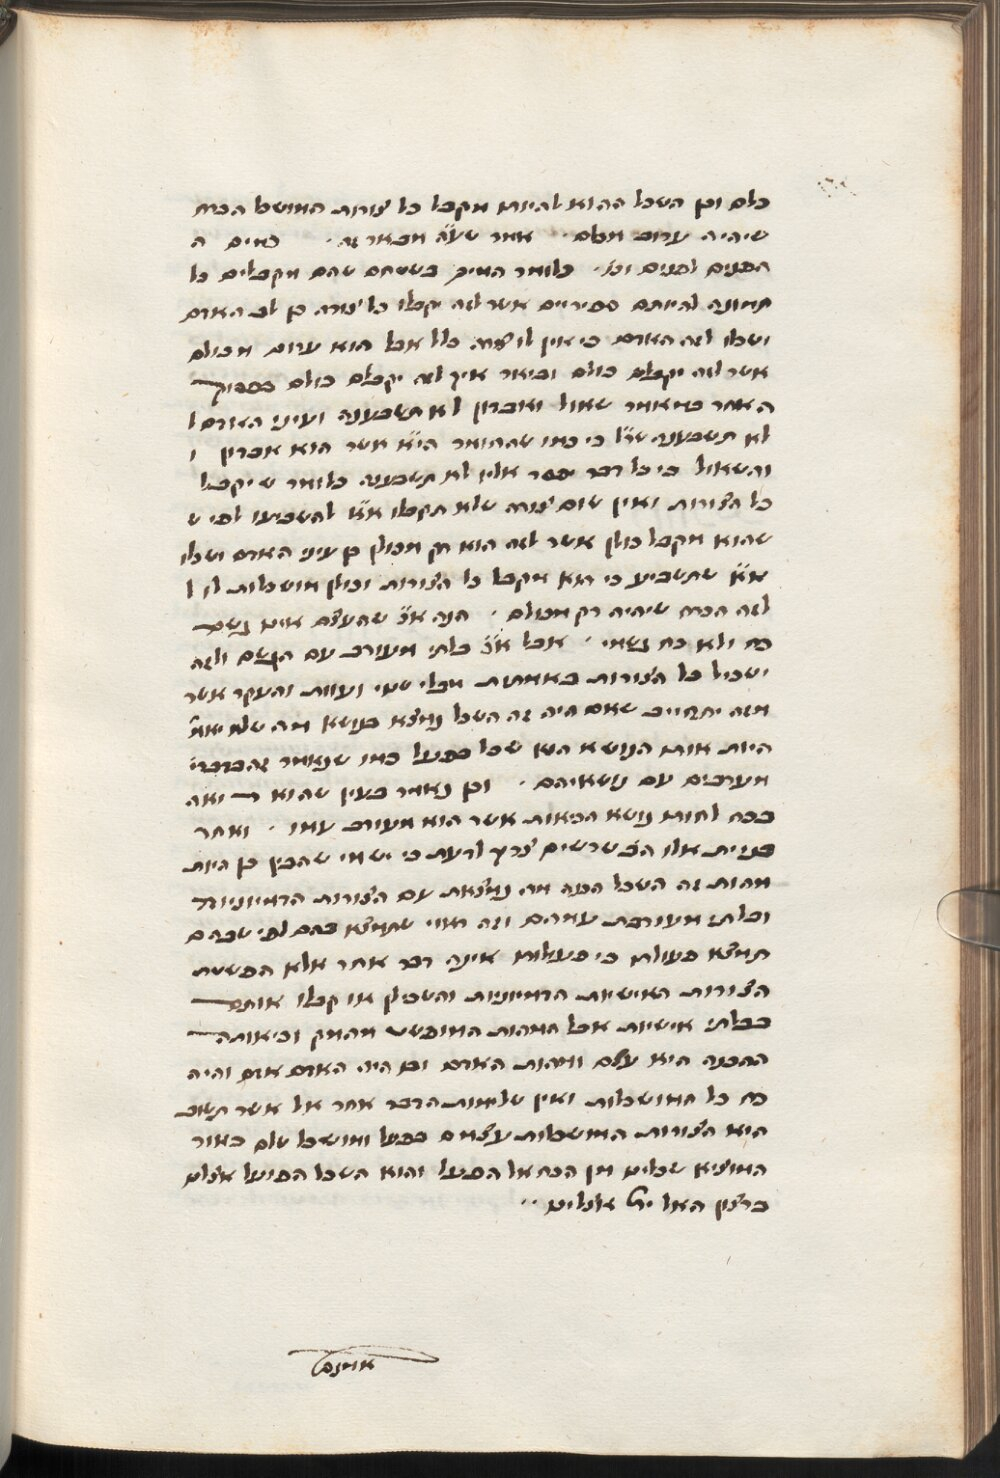 כלם וכן השכל ההוא להיות מקבל כל צורות המושכל הכרח
שיהיה ערום מכלם · אמר שע״ה מבאר זה · כמים ה
הפנים לפנים וכו׳ · כלומר המים בשטחם שהם מקבלים כל
תמונה להיותם ספיריים אשר לזה יקבלו כל צורה כן לב האדם
ושכלו לזה האדם כי אין לו צורה כלל אבל הוא ערום מכולם
אשר לזה יקבלם כולם וביאר איך לזה יקבלם כולם בפסוק
האחר באמרו שאול ואבדון לא תשבענה ועיני האדם ל
לא תשבענה ש״ל כי כמו שהחומר הי״א אשר הוא אבדון ו
והשאול כי כל דבר יחסר אליו לא תשבענה כלומר שיקבל
כל הצורות ואין שום צורה שלא תקבלו א״א להשביעו לפי ש
שהוא מקבל כולן אשר לזה הוא רק מכולן כן עיני האדם ושכלו
א״א שתשביע כי הוא מקבל כל הצורות וכולן מושכלות לו ל
לזה הכרח שיהיה רק מכולם · הנה א״כ שהעצם אינו גשם
כח ולא כח גשמי · אבל א״כ בלתי מעורב עם הגשם ולזה
ישכיל כל הצורות באמתות מבלי שנוי ועוות והעקר אשר
מזה יתחייב שאם היה זה השכל נמצא בנושא מה שלא יאות
היות אותו הנושא הוא שכל בפעל כמו שנאמר בדברים
מעורבים עם נושאיהם · וכן נאמר בעין שהוא רואה
בכח להיות נושא הראות אשר הוא מעורב עמו · ואחר
בניית אלו השרשים צריך לדעת כי ישמי שהבין כן היות
מהות זה השכל הכנה מה נמצאת עם הצורות הדמיוניות
ובלתי מעורבת עמהם וזה ראוי שתמצא בהם לפי שבהם
תמצא פעולתו כי פעולתו אינה דבר אחר אלא הפשטת
הצורות האישיות הדמיוניות והשכילן או קבלו אותם
בבלתי אישיות אבל המהות המופשט מהם וביאותה
ההכנה היא עצם ומהות האדם וכו היה האדם אדם והיה
כח כל המושכלות ואין שלימות הדבר אחר אל אשר תשוב
היא הצורות המושכלות עצמם בפעל ומושכל שלם כאור
המוציא שכלינו מן הכח אל הפעל והוא השכל הפועל אצלם
ברצון האל ית׳ אצלינו ··
אמנם